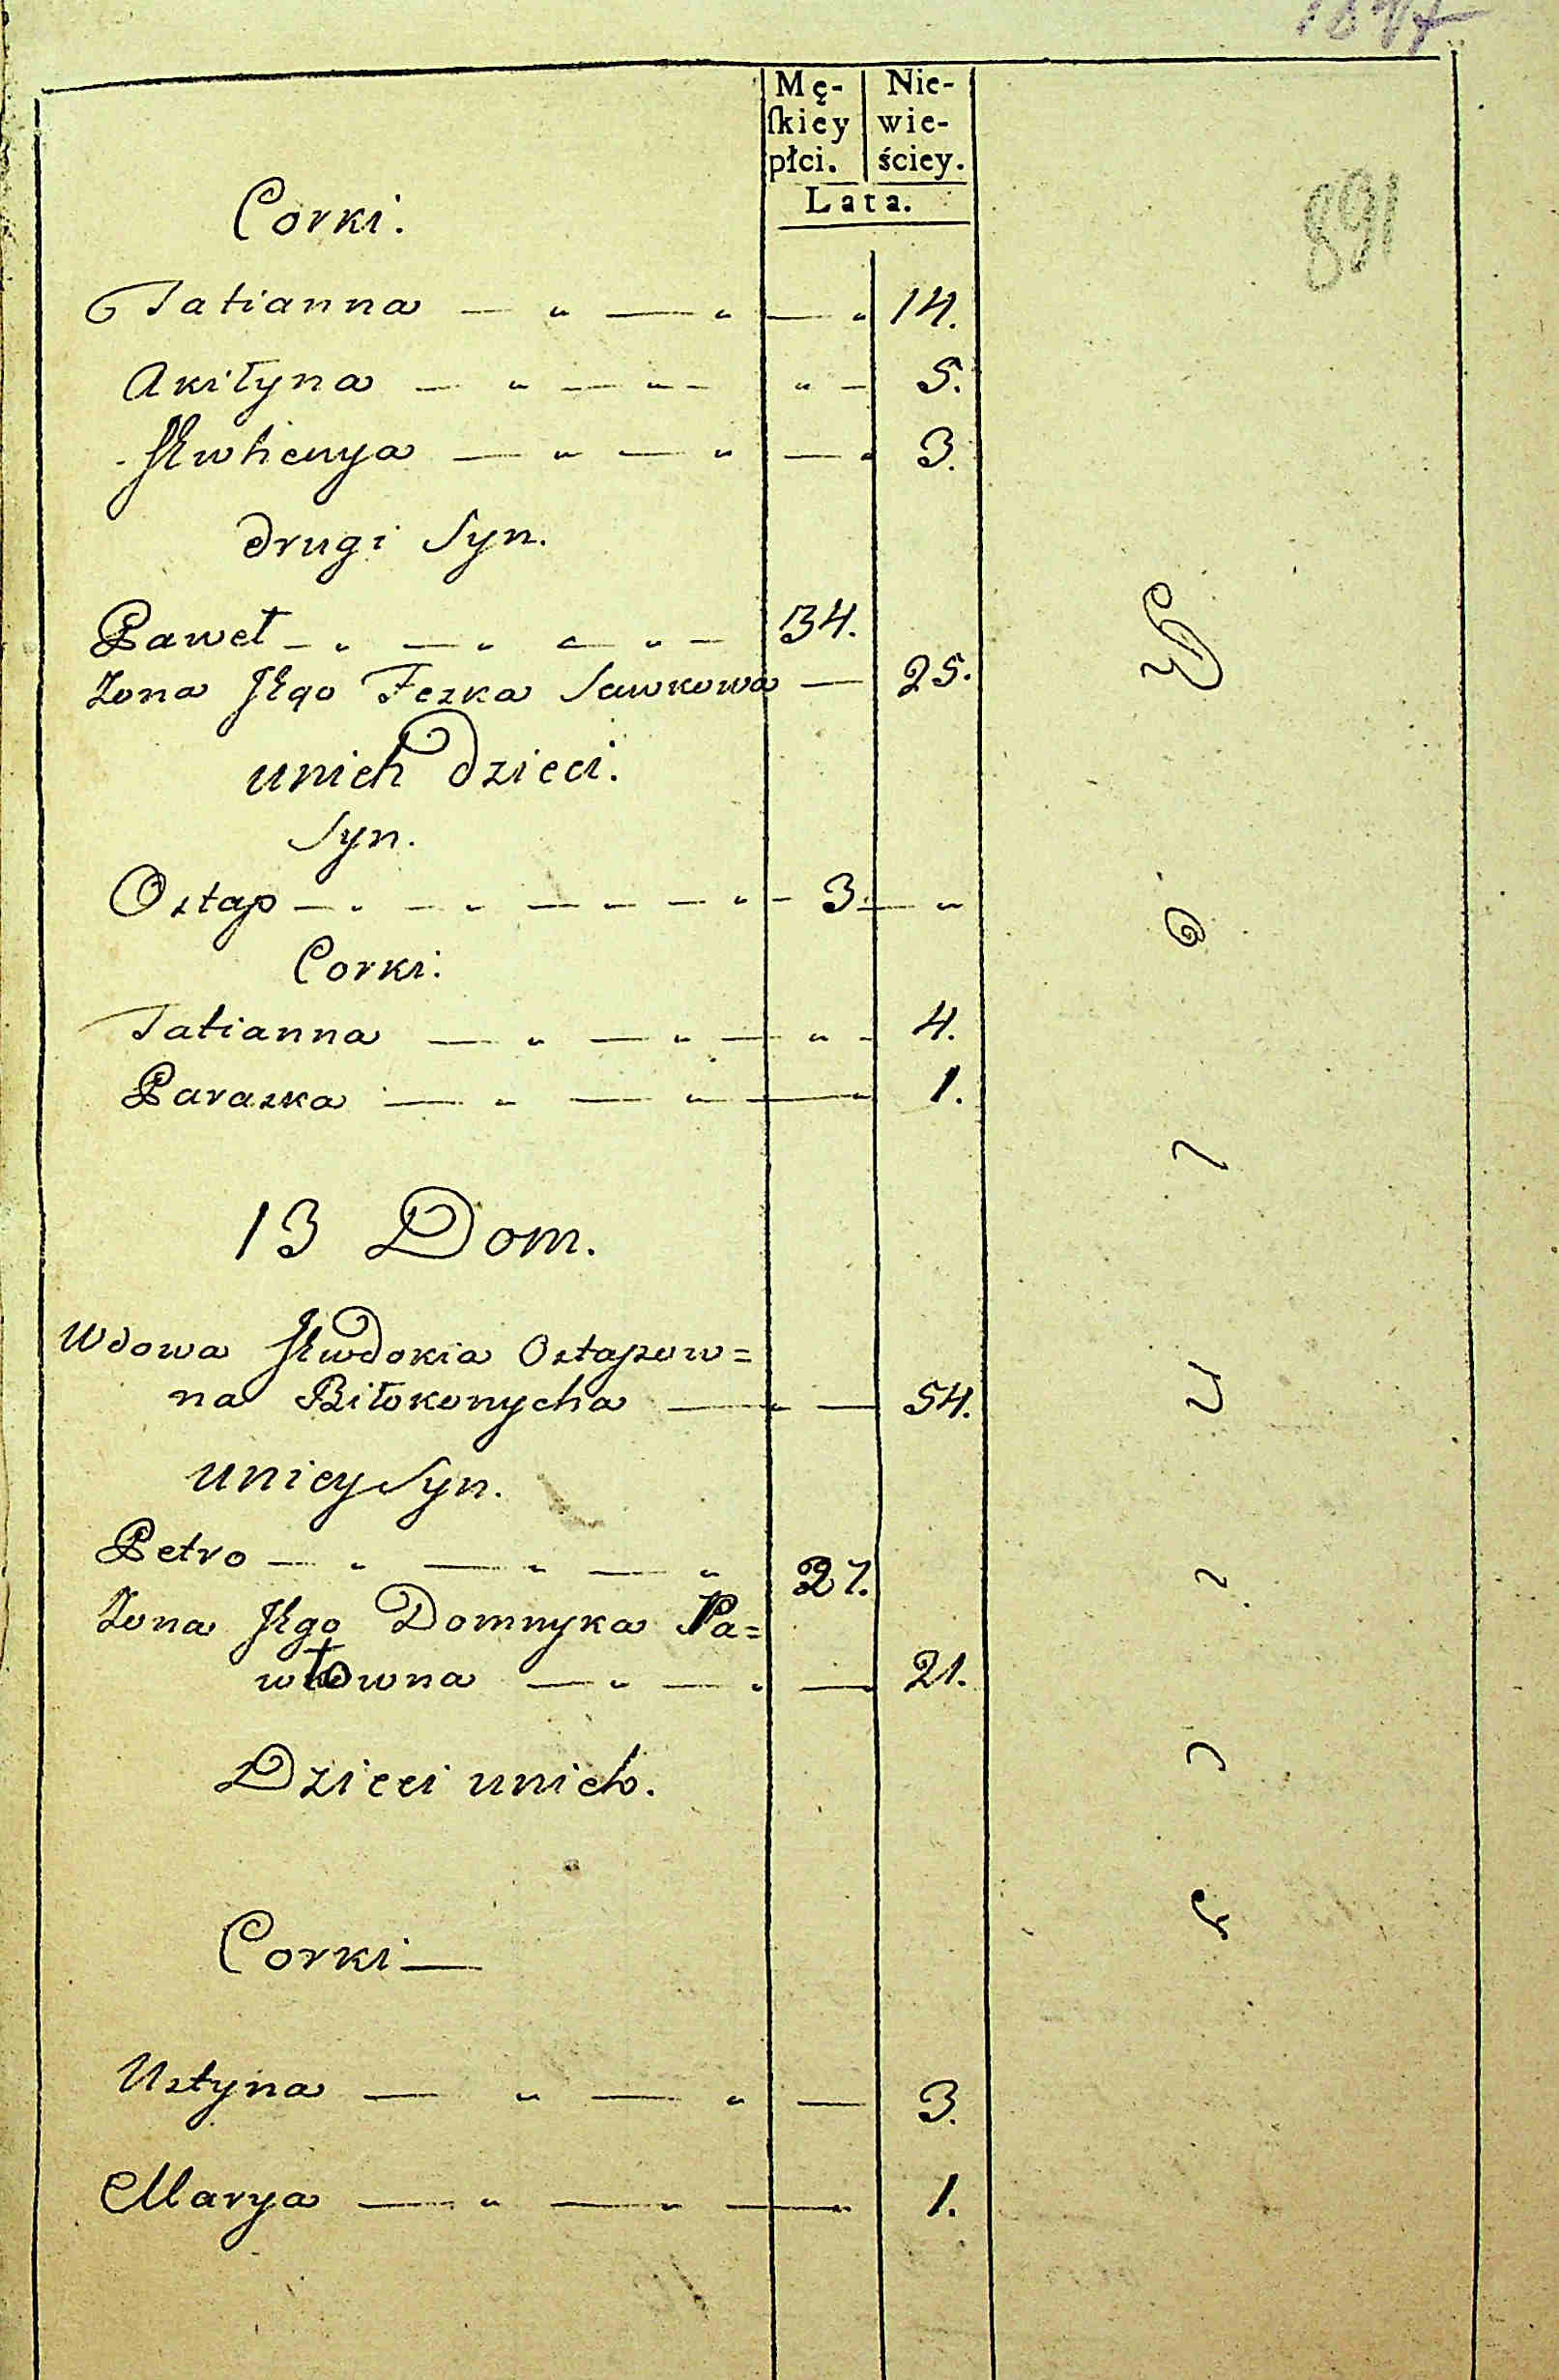 Mę- Nie-
ſkiey wie-
płci. ściey.
Lata.
891
Corki.
Tatianna — „ — „ — „ 14.
Akiłyna — „ — „ — „ — 5.
Ewhenya — „ — „ — „ 3.
drugi Syn.
Paweł — „ — „ — „ — 34.
Zona Jego Feska Sawkowa — 25.
unich Dzieci.
Syn.
Ostap — „ — „ — „ — „ — 3. — „
Corki.
Tatianna — „ — „ — „ — 4.
Paraska — „ — „ — „ 1.
13 Dom.
Wdowa Ewdokia Ostapow=
na Biłokonycha — „ — 54.
uniey Syn.
Petro — „ — „ — „ 27.
Zona Jego Domnyka Pa=
włowna — „ — „ — 21.
Dzieci unich.
Corki —
Ustyna — „ — „ — 3.
Marya — „ — „ — „ 1.